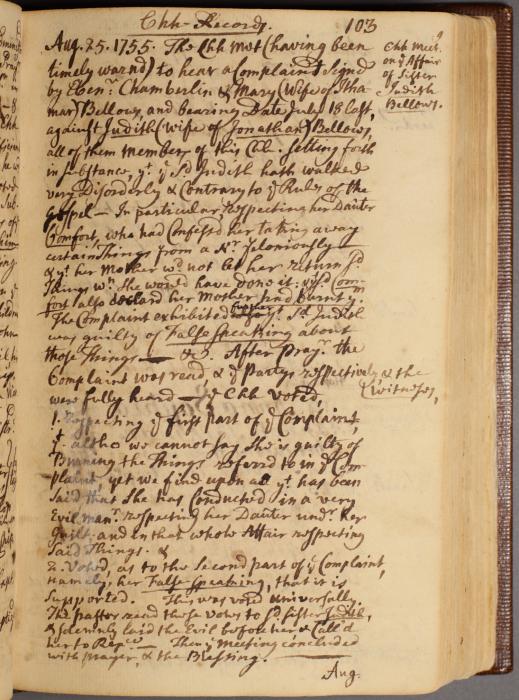 Chh-Records.
103
Aug. 25. 1755. The Chh met (having been
timely warnd) to hear a Complaint Signed
by Ebenr. Chamberlin & Mary (Wife of Itha
mar) Bellows, and bearing Date July 18 last,
against Judith (wife of Jonathan) Bellows,
all of them Members of this Chh: Setting forth
in Substance, yt. ye. Sd. Judith hath walked
very Disorderly & Contrary to ye Rules of the
Gospel — In particular, respecting her Dauter
Comfort, who had Confessd her taking away
certain Things from a Nr. feloniously —
& yt. her Mother wd. not let her return Sd.
Things wc. She would have done it: & Sd. Com
fort also declard her Mother had burnt ym.
The Complaint exhibited further yt. Sd. Judith
was guilty of False Speaking about
those Things — &c. After Prayr. the
Complaint was read & ye Partys respectively & the
witnesses,
were fully heard — ye Chh Voted,
1. Respecting ye first part of ye Complaint
yt. altho we cannot say She is guilty of
Burning the Things referred to in ye Com
plaint, yet we find upon all yt. has been
Said that She has Conducted in a very
Evil manr. respecting her Dauter undr. her
Guilt, and in that whole Affair respecting
Said Things. &
2. Voted, as to the Second part of ye Complaint,
namely, her False Speaking, that it is
Supported. This was voted universally.
The pastor read those Votes to Sd. Sister
& Solemnly laid the Evil before her & Call'd
her to Repce. — Then ye Meeting concluded
with prayer, & the Blessing.
Aug.
Chh meet.
on ye Affair
of Sister
Judith
Bellows.